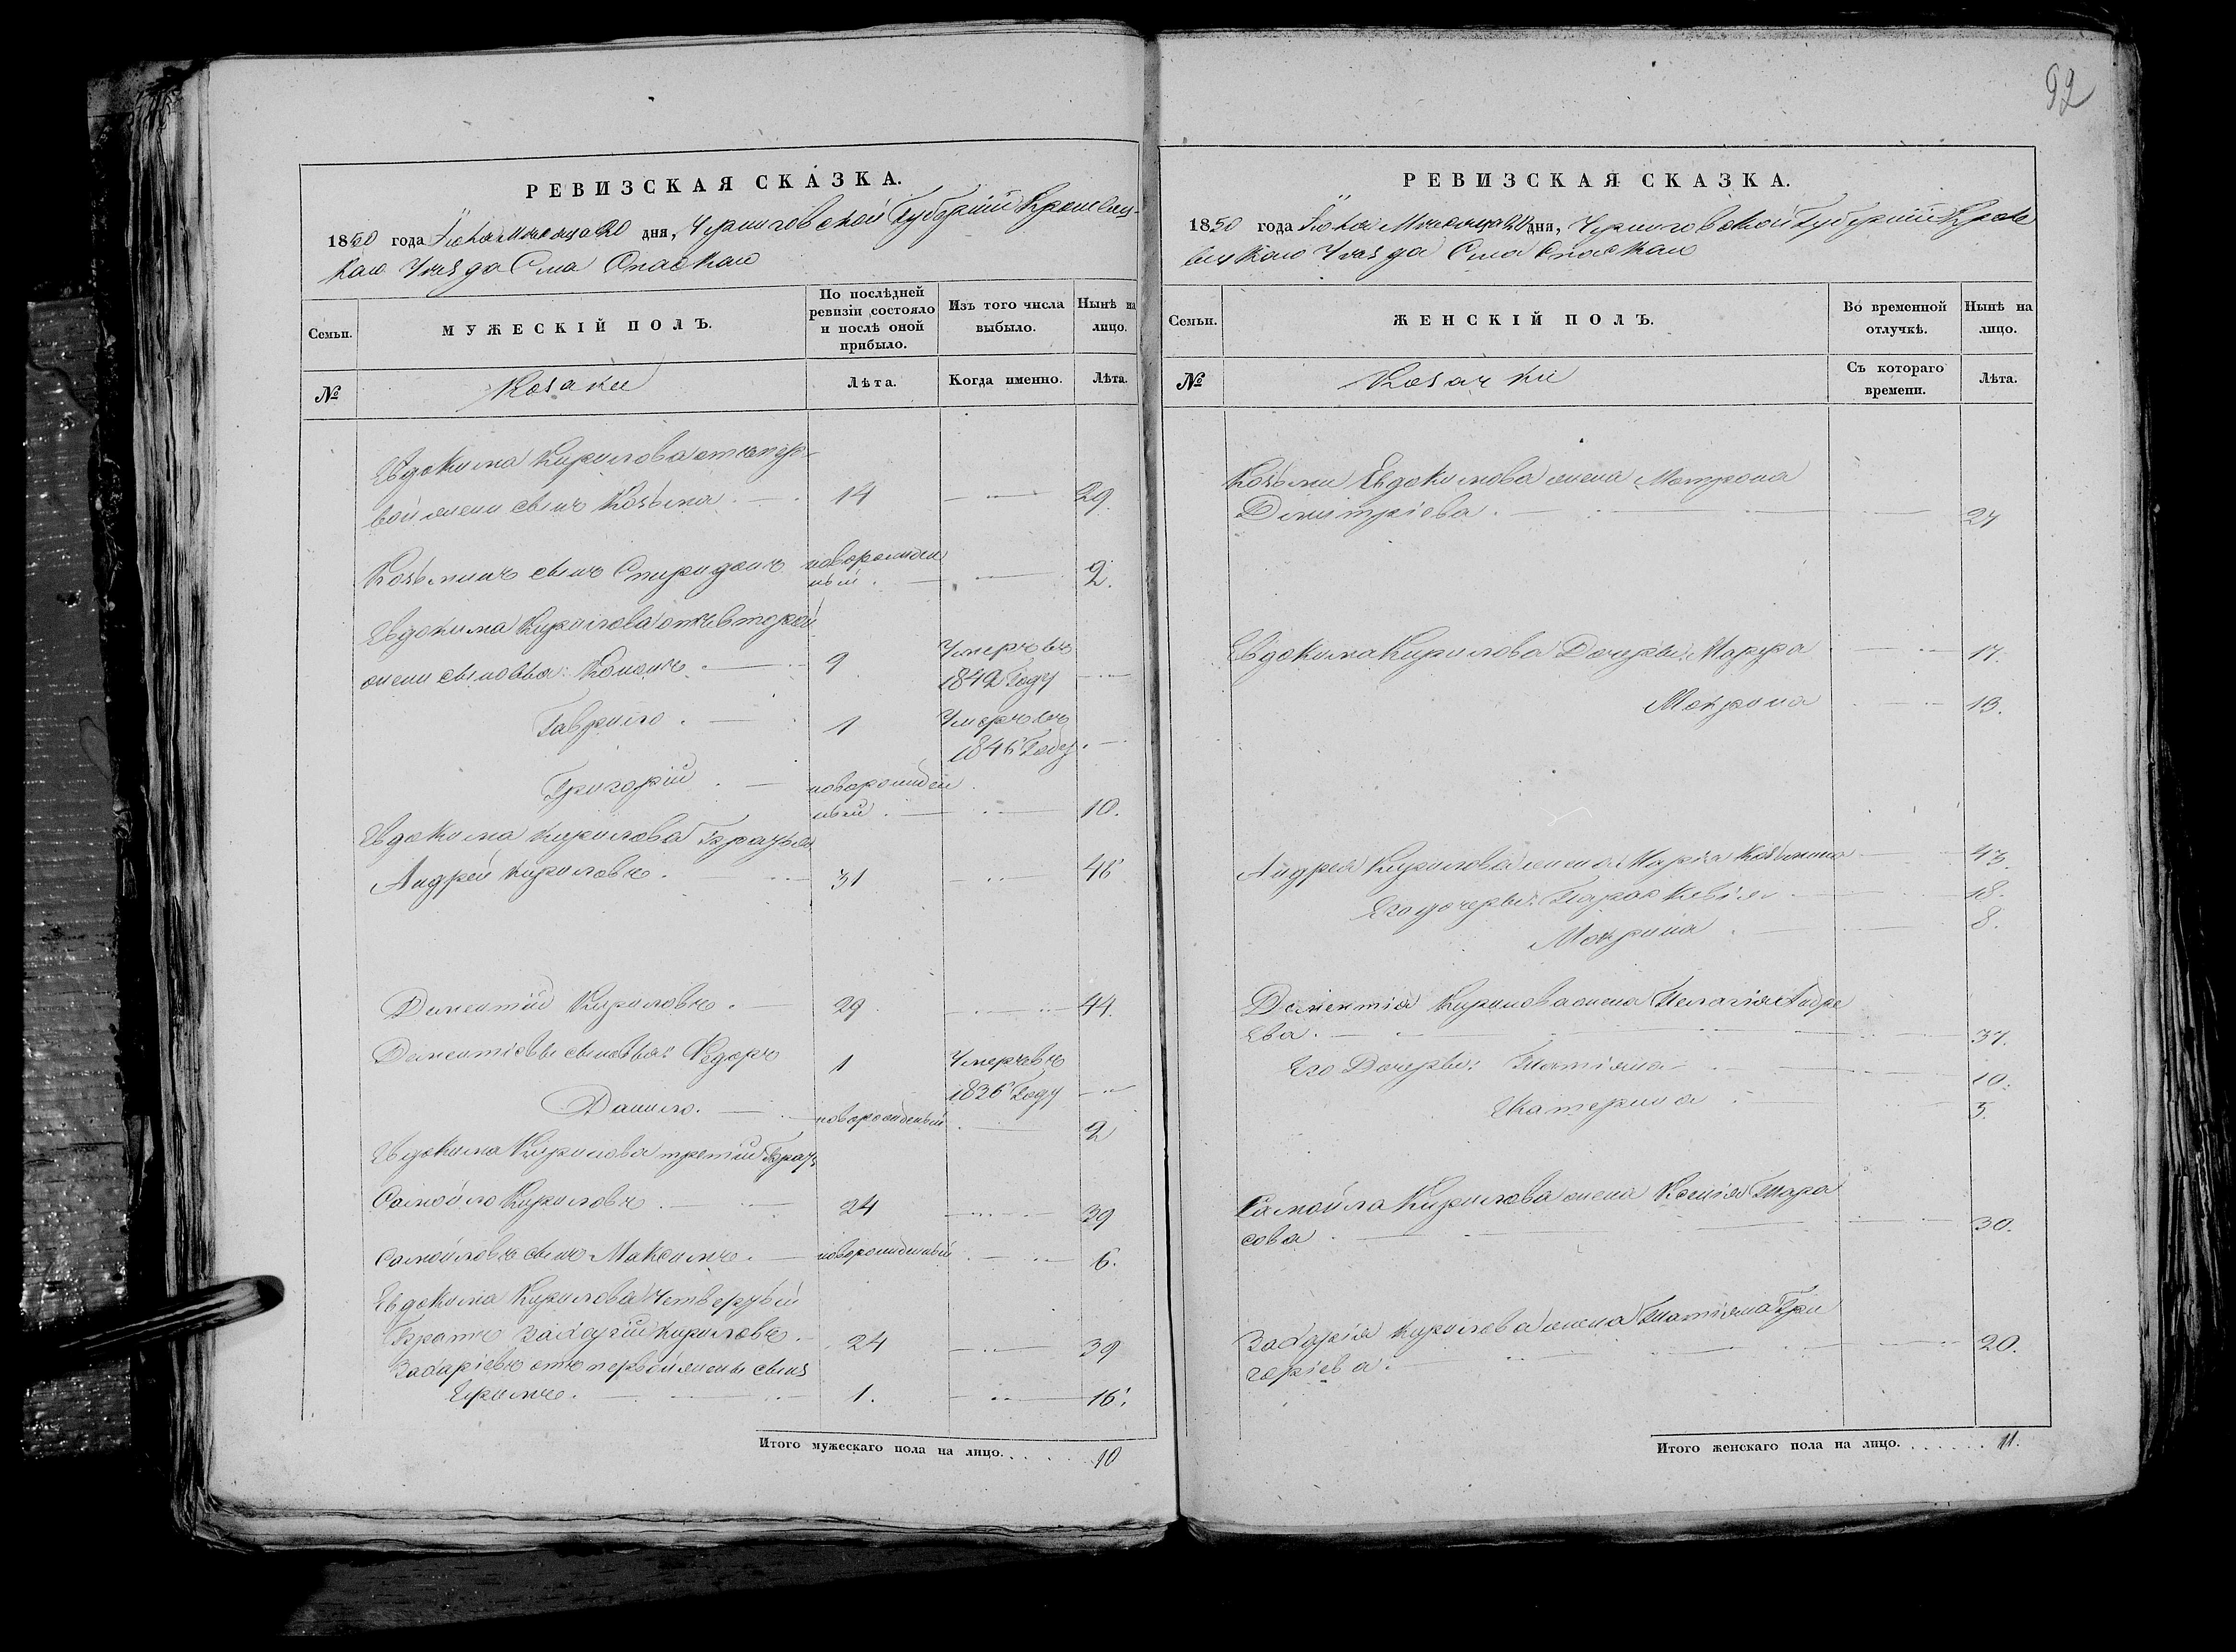 РЕВИЗСКАЯ СКАЗКА.
1850 года Іюня Мѣсяца 20 дня, Черниговской Губерніи Кролевец-
каго Уѣзда Села Спаскаго
Семьи.
МУЖЕСКІЙ ПОЛЪ.
По послѣдней ревизіи состояло и послѣ оной прибыло.
Изъ того числа выбыло.
Нынѣ на лицо.
№
Козаки
Лѣта.
Когда именно.
Лѣта.
Евдокима Кирилова отъ пер-
вой жены сынъ Козьма. 14 29
Козьминъ сынъ Спиридонъ новорожден
ный. 2.
Евдокима Кирилова отъ второй
жены сыновья: Кононъ. 9 Умеръ въ
1842 Году
Гаврило. 1 Умеръ въ
1846 Году.
Григорій новорожден
ный. 10.
Евдокима Кирилова Братья
Андрей Кириловъ. 31 46
Дементій Кириловъ. 29 44.
Дементіевы сыновья: Федоръ 1 Умеръ въ
1836 Году
Данило. новорожденый 2
Евдокима Кирилова третій Братъ
Самойло Кириловъ. 24 39
Самойловъ сынъ Максимъ. новорожденный 6.
Евдокима Кирилова четвертый
Братъ Захарій Кириловъ. 24 39
Захаріевъ отъ первой жены сынъ
Ефимъ. 1. 16.
Итого мужескаго пола на лицо. 10
92
РЕВИЗСКАЯ СКАЗКА.
1850 года Іюня Мѣсяца 20 дня, Черниговской Губерніи Кроле
вецкаго Уѣзда Села Спаскаго
Семьи.
ЖЕНСКІЙ ПОЛЪ.
Во временной отлучкѣ.
Нынѣ на лицо.
№
Козачки
Съ котораго времени.
Лѣта.
Козьмы Евдокимова жена Матрона
Димитріева. 27
Евдокима Кирилова Дочеры: Марфа 17.
Мокрина 13.
Андрея Кирилова жена Марія Козьмина 43
Его дочеры: Параскевія 18.
Мокрина 8.
Дементія Кирилова жена Пелагія Андре
ева. 37.
Его Дочеры: Татіяна 10.
Катерина 5.
Самойла Кирилова жена Ксенія Тара
сова. 30.
Захарія Кирилова жена Татіяна Гри
горіева. 20.
Итого женскаго пола на лицо. 11.